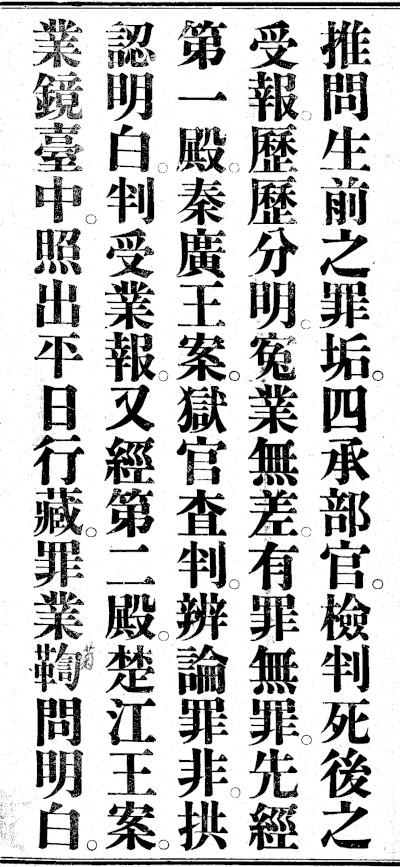 推問生前之罪垢。四承部官。檢判死後之
受報。歷歷分明。寃業無差。有罪無罪。先經
第一殿。秦廣王案。獄官查判。辨論罪非。拱
認明白。判受業報。又經第二殿。楚江王案。
業鏡臺中。照出平日行藏。罪業鞫問明白。